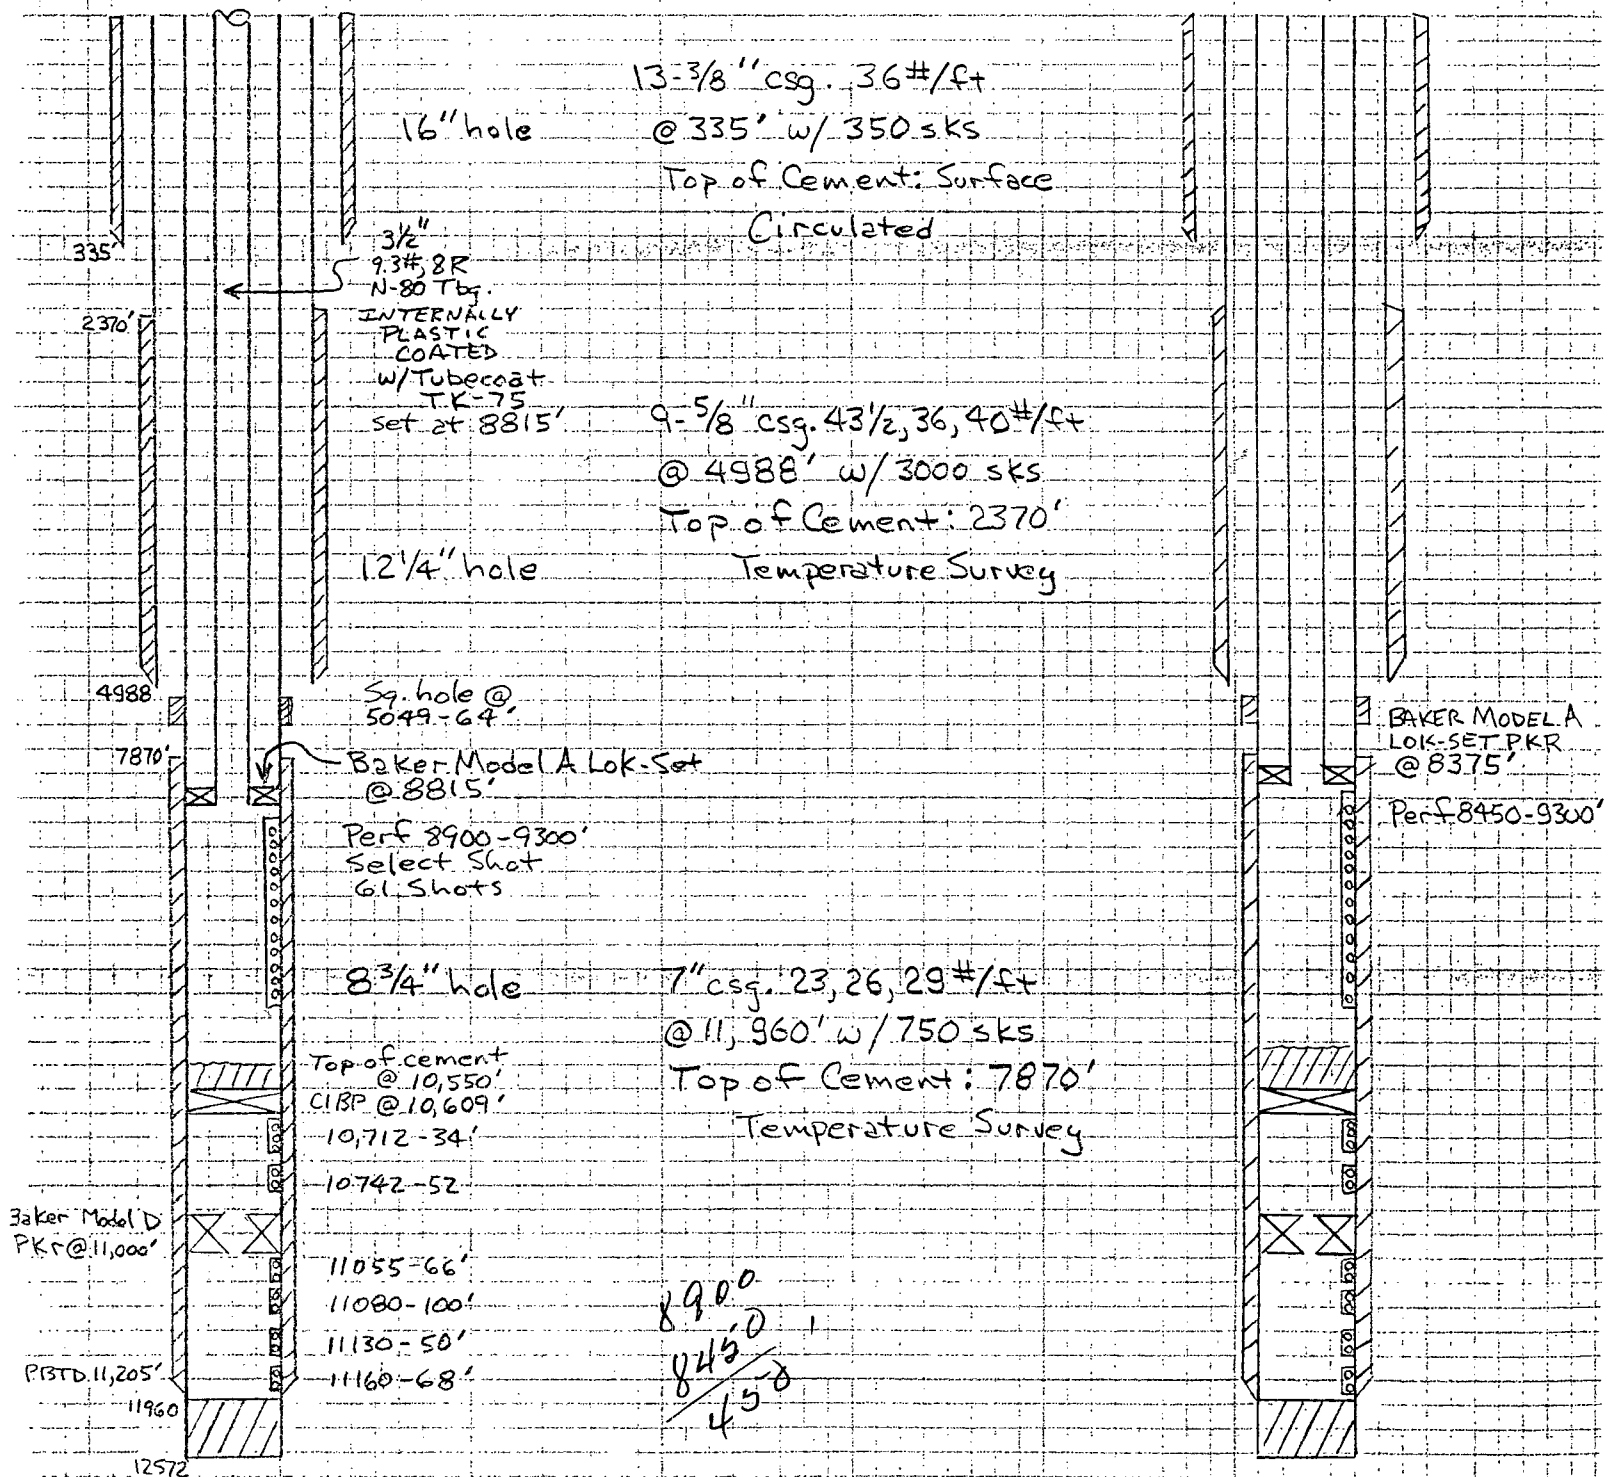 13-3/8" csg. 36#/ft
16" hole
@ 335' w/ 350 sks
Top of Cement: Surface
Circulated
335'
3½"
9.3#, 8R
N-80 Tbg.
INTERNALLY
PLASTIC
COATED
w/Tubecoat
TK-75
set at 8815'
2370'
9-5/8" csg. 43½, 36, 40#/ft
@ 4988' w/ 3000 sks
Top of Cement: 2370'
Temperature Survey
12¼" hole
4988
Sq. hole @
5049-64'
7870'
Baker Model A Lok-Set
@ 8815'
BAKER MODEL A
LOK-SET PKR
@ 8375'
Perf 8900-9300'
Select Shot
61 Shots
Perf 8450-9300'
8¾" hole
7" csg. 23, 26, 29#/ft
@ 11,960' w/ 750 sks
Top of Cement: 7870'
Temperature Survey
Top of cement
@ 10,550'
CIBP @ 10,609'
10,712-34'
10742-52
Baker Model D
PKr@ 11,000'
11055-66'
11080-100'
11130-50'
11160-68'
PBTD 11,205'
11960
12572
8900
8450
450